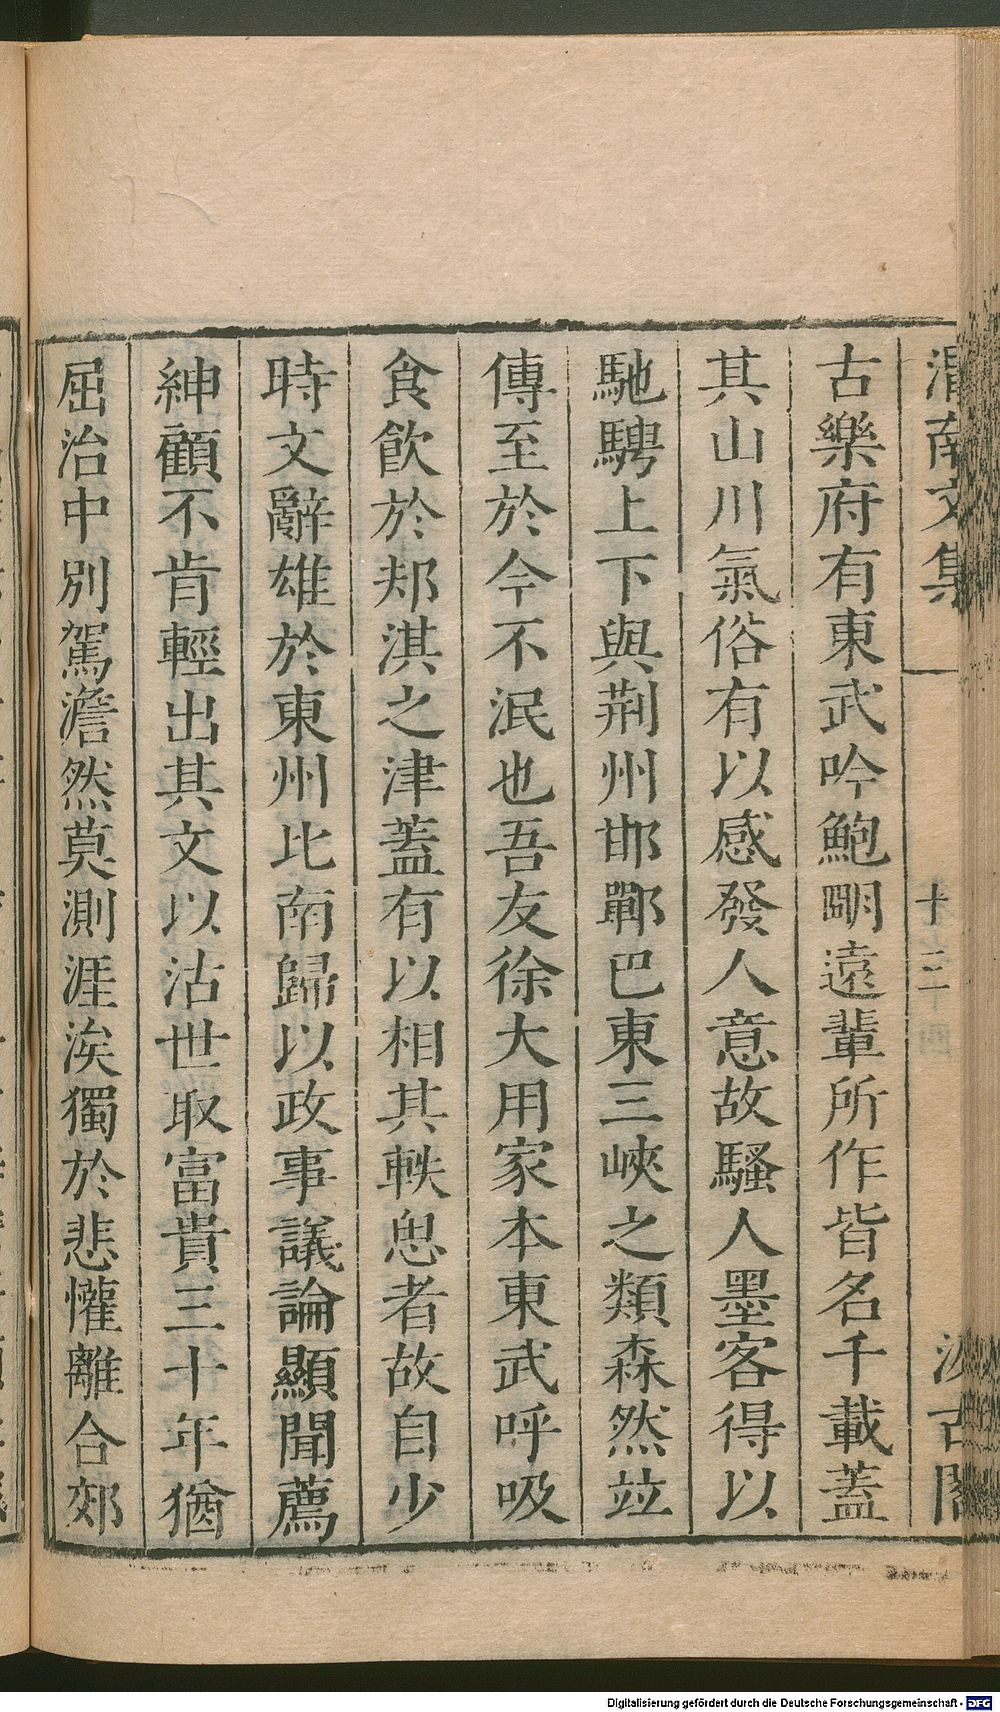 渭南文集 十三 汲古閣
古樂府有東武吟鮑明遠輩所作皆名千載蓋
其山川氣俗有以感發人意故騷人墨客得以
馳騁上下與荆州邯鄲巴東三峽之類森然竝
傳至於今不泯也吾友徐大用家本東武呼吸
食飲於郑淇之津蓋有以相其軼思者故自少
時文辭雄於東州比南歸以政事議論顯聞薦
紳顧不肯輕出其文以沽世取富貴三十年猶
屈治中別駕澹然莫測涯涘獨於悲懽離合郊
Digitalisierung gefördert durch die Deutsche Forschungsgemeinschaft - DFG